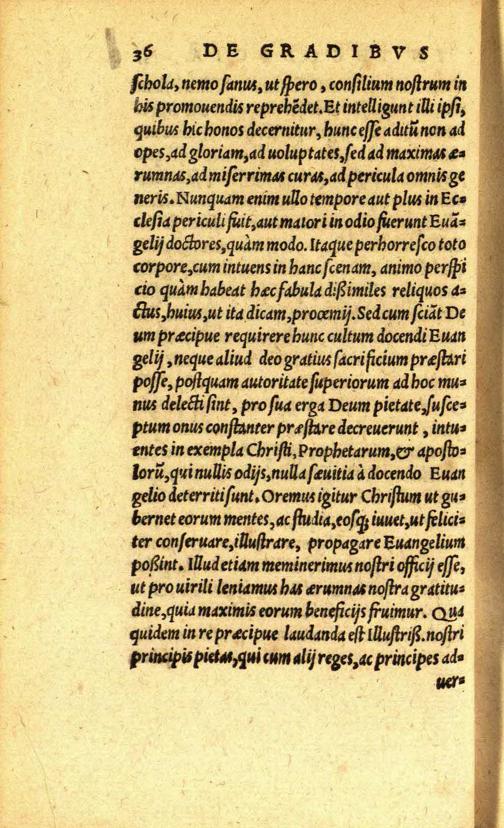 36 DE GRADIBVS
ſchola, nemo ſanus, ut ſpero, conſilium noſtrum in
his promouendis reprehēdet. Et intelligunt illi ipſi,
quibus hic honos decernitur, hunc eſſe aditū non ad
opes, ad gloriam, ad uoluptates, ſed ad maximas æ=
rumnas, ad miſerrimas curas, ad pericula omnis ge
neris. Nunquam enim ullo tempore aut plus in Ec=
cleſia periculi fuit, aut maiori in odio fuerunt Euā=
gelij doctores, quàm modo. Itaque perhorreſco toto
corpore, cum intuens in hanc ſcenam, animo perſpi
cio quàm habeat hæc fabula dißimiles reliquos a=
ctus, huius, ut ita dicam, proœmij. Sed cum ſciāt De
um præcipue requirere hunc cultum docendi Euan
gelij, neque aliud deo gratius ſacrificium præſtari
poſſe, poſtquam autoritate ſuperiorum ad hoc mu=
nus delecti ſint, pro ſua erga Deum pietate, ſuſce=
ptum onus conſtanter præſtare decreuerunt, intu=
entes in exempla Chriſti, Prophetarum, & apoſto=
lorū, qui nullis odijs, nulla ſæuitia à docendo Euan
gelio deterriti ſunt. Oremus igitur Chriſtum ut gu=
bernet eorum mentes, ac ſtudia, eosq́; iuuet, ut felici=
ter conſeruare, illuſtrare, propagare Euangelium
poßint. Illud etiam meminerimus noſtri officij eſſe,
ut pro uirili leniamus has ærumnas noſtra gratitu=
dine, quia maximis eorum beneficijs fruimur. Qua
quidem in re præcipue laudanda eſt Illuſtriß. noſtri
principis pietas, qui cum alij reges, ac principes ad=
uer=